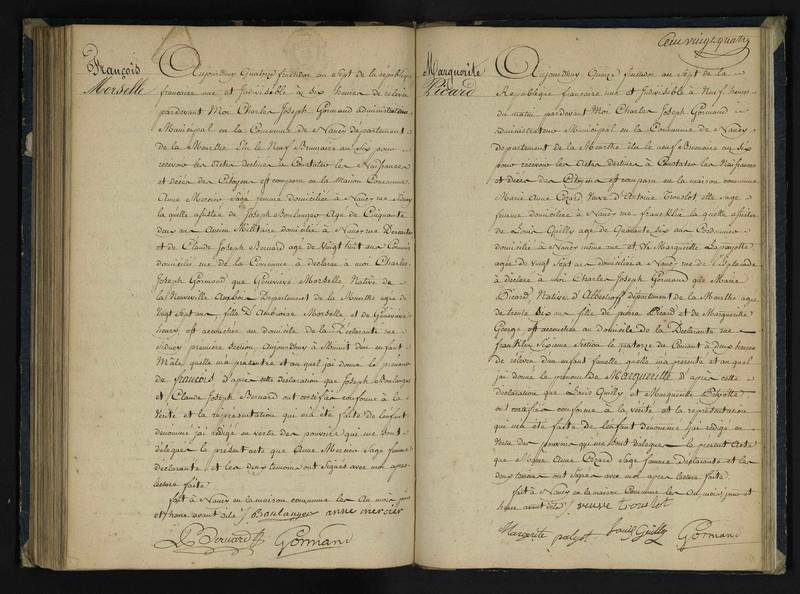 François
Morselle
Aujourdhuy Quatorze fructidor an Sept de la république
francoise une et Indivisible à Six heures de relevée
pardevant Moi Charles Joseph Gormand administrateur
Municipal en la Commune de Nancy département
de la Meurthe Elu le Neuf Brumaire an Six pour
recevoir les Actes destinés à Constater les Naissances
et décès des Citoyens est comparu en la Maison Commune
Anne Mercier Sage femme domiciliée à Nancy rue Sidney
la quelle assistée de Joseph Boulanger Agé de Cinquante
deux ans Ancien Militaire domicilié à Nancy rue Descartes
et de Claude Joseph Bernard agé de Vingt huit ans
domicilié rue de la Commune à déclaré à moi Charles
Joseph Gormand que Geneviève Morselle, Native de
la Neuveville Département de la Meurthe agée de
Vingt Sept ans, fille d'Ambroise Morselle et de Geneviève
henry est accouchée au domicile de la Déclarante rue
Sidney première Section Aujourdhuy à Minuit d'un enfant
Mâle quelle m'a présenté et auquel jai donné le prénom
de François d'après cette déclaration que Joseph Boulanger
et Claude Joseph Bernard ont certifiée conforme à la
Vérité et la représentation qui m'a été faite de lenfant
denommé jai rédigé en vertu des pouvoirs qui me sont
délégués le présent acte que Anne Mercier Sage femme
déclarante et les deux temoins ont Signés avec moi après
lecture faite
fait à Nancy en la maison commune les An mois jour
et heure avant dits J. Boulanger anne mercier
Bernard Gormand
Cent vingt quatre
Marguerite
Picard
Aujourdhuy Quinze fructidor an Sept de la
République francoise une et Indivisible à Neuf heures
du matin pardevant Moi Charles Joseph Gormand
administrateur Municipal en la Commune de Nancy
Département de la Meurthe élu le neuf Brumaire an Six
pour recevoir les Actes destinés à Constater les Naissances
et décès des Citoyens est comparu en la maison commune
Marie Anne Cizard Veuve d'Antoine Troulot Sage
femme domiciliée à Nancy rue franklin la quelle assistée
de Louis Quilly agé de Quarante Six ans Cordonnier
domicilié à Nancy même rue et de Marguerite
agée de Vingt Sept ans domiciliée à Nancy rue de l'Esplanade
à déclaré à Moi Charles Joseph Gormand que Marie
Picard, Native d'Albestroff département de la Meurthe agée
de trente Six ans fille de pierre Picard et de Marguerite
George est accouchée au domicile de la Déclarante rue
franklin Sixième Section le quatorze du Courant à Deux heures
de relevée d'un enfant femelle quelle m'a présenté et auquel
jai donné le prénom de Marguerite d'après cette
déclaration que Louis Quilly et Marguerite
ont certifiée conforme à la vérité et la représentation
qui m'a été faite de lenfant denommé jai rédigé en
Vertu des pouvoirs qui me sont délégués le présent Acte
que Marie Anne Cizard Sage femme Déclarante et les
deux temoins ont Signé avec moi après lecture faite
fait à Nancy en la maison Commune les An, mois, jour et
heure avant dits veuve troulot
Margerite palyot Louis Quilly Gormand